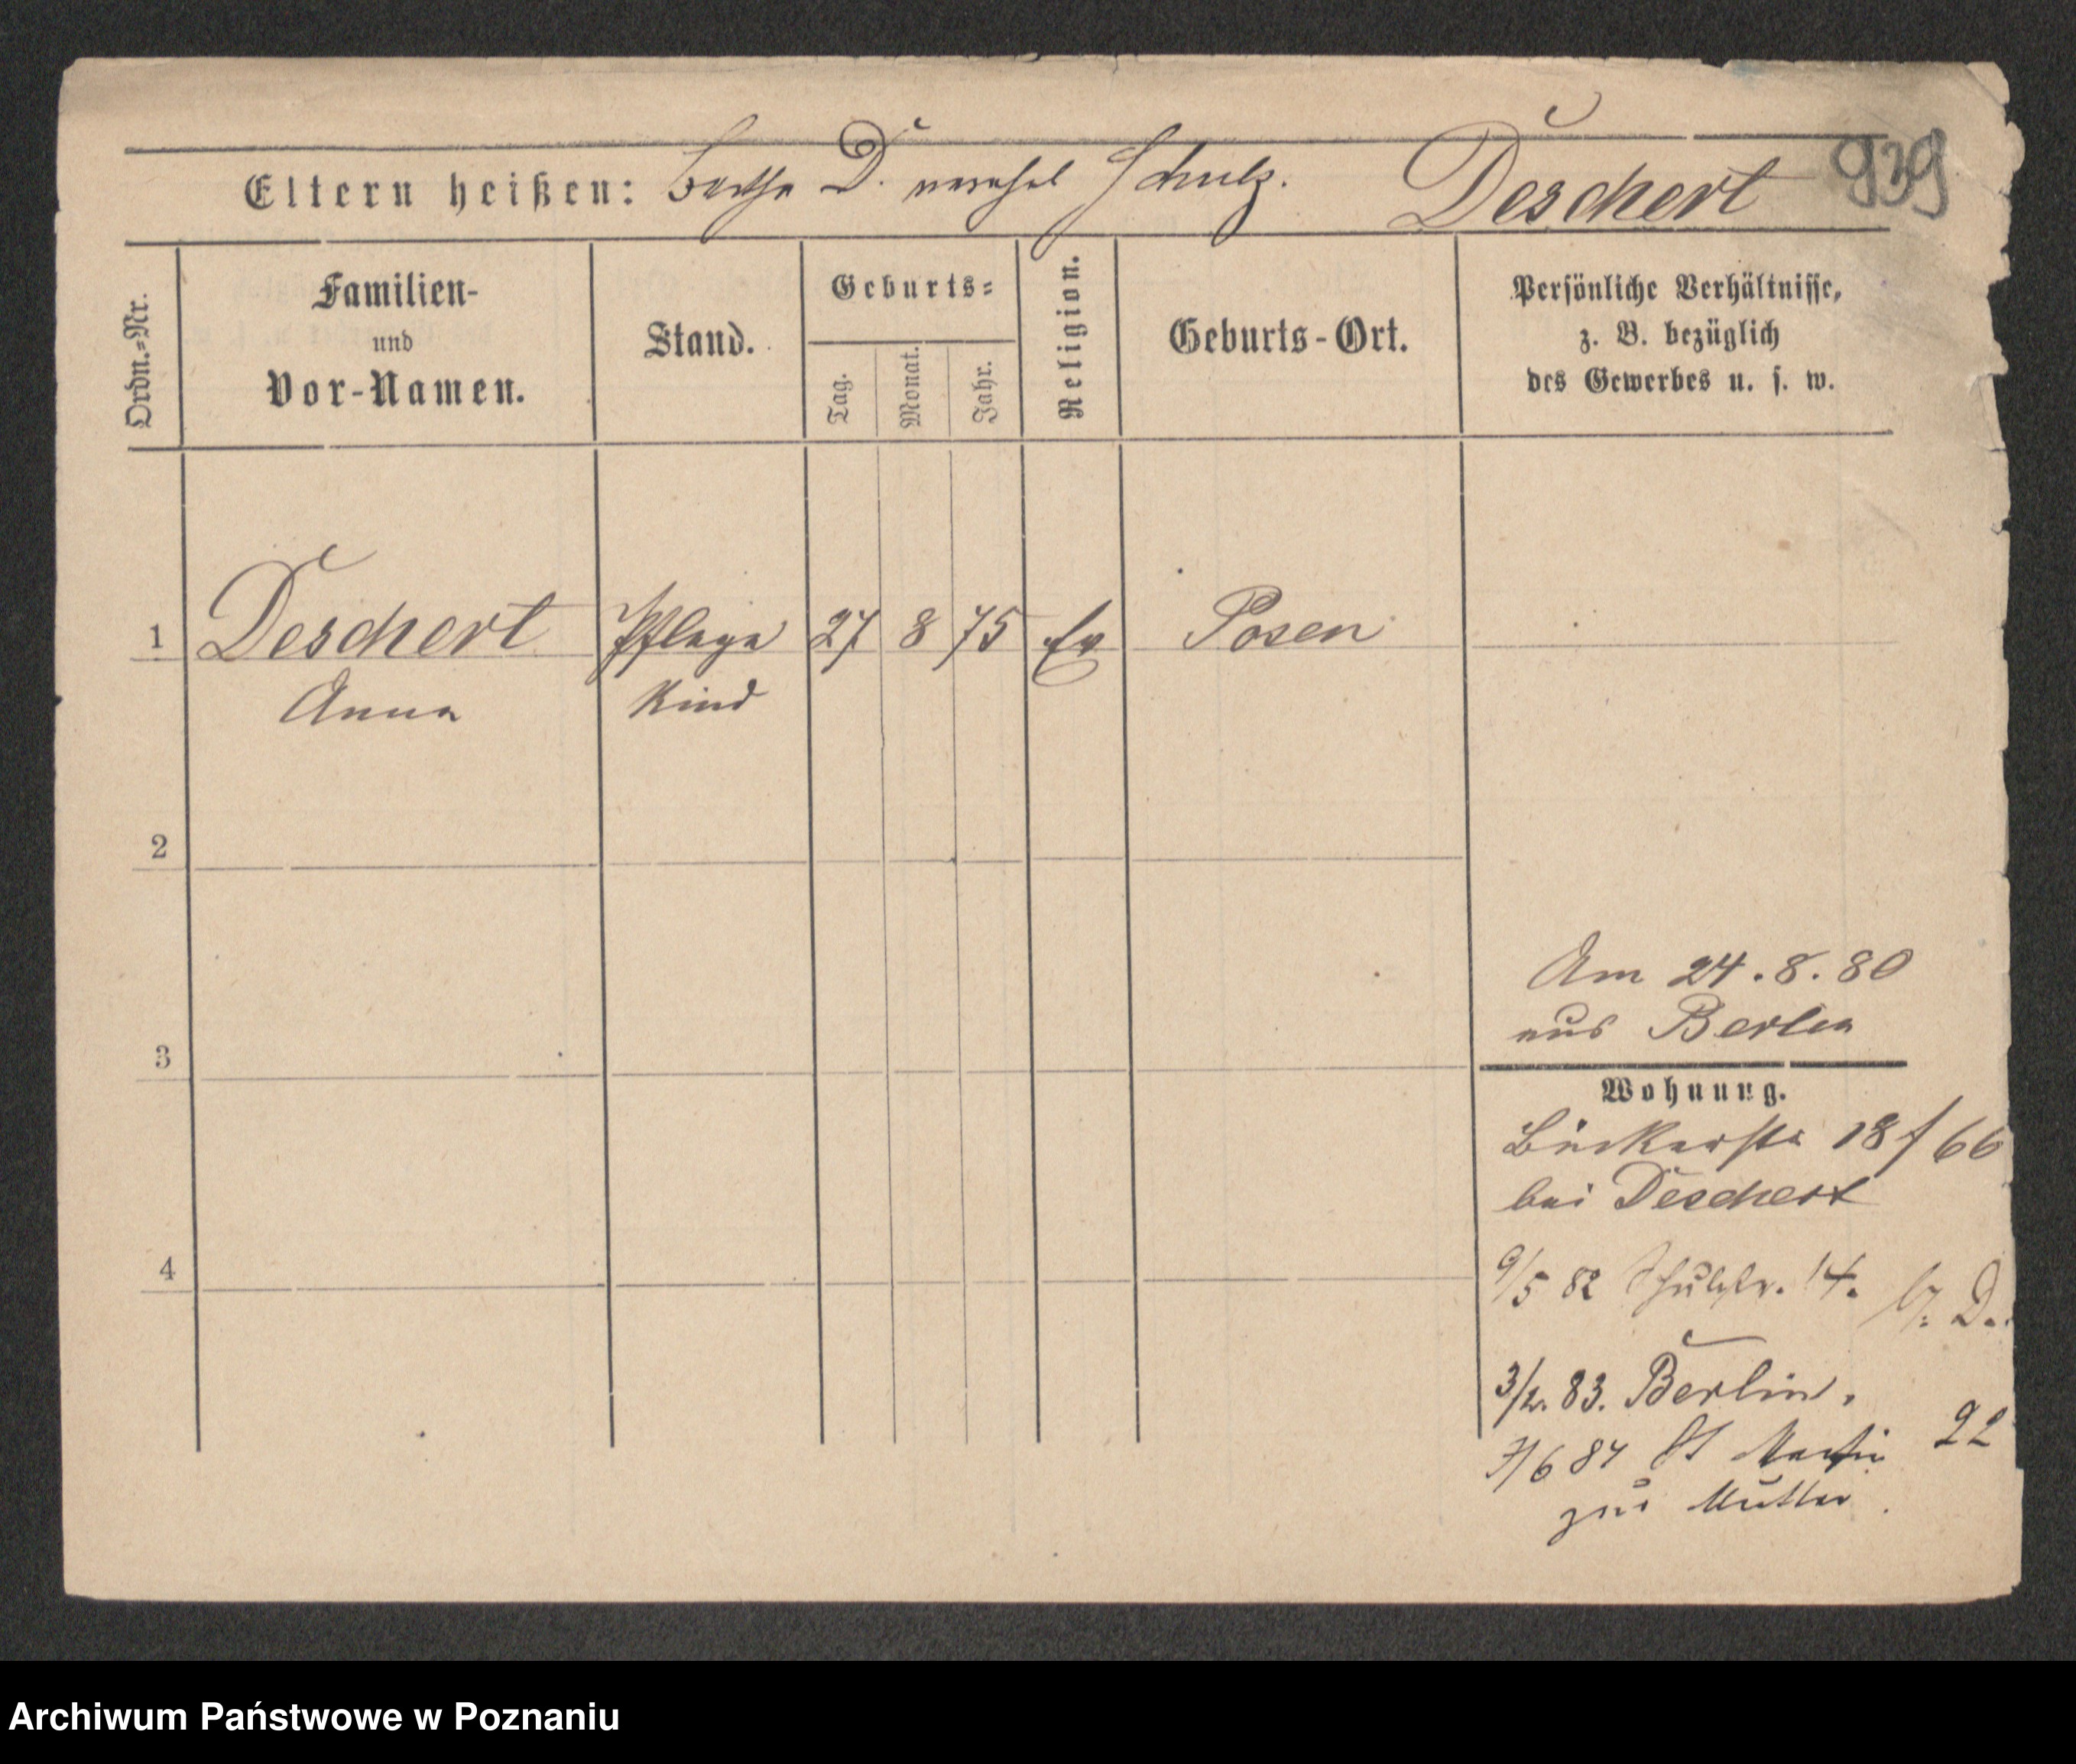 939
Eltern heißen: Bertha D. verehel Schulz. Deschert
Ordn.=Nr.
Familien-
und
Vor-Namen.
Stand.
Geburts=
Tag.
Monat.
Jahr.
Religion.
Geburts-Ort.
Persönliche Verhältnisse,
z. B. bezüglich
des Gewerbes u. s. w.
1 Deschert Pflege 27 8 75 Ev Posen
Anna Kind
2
3
4
Am 24.8.80
aus Berlin
Wohnung.
Bäckerstr 18 / 66
bei Deschert
9/5 82 14. b. D.
3/2. 83. Berlin.
7/6 84 St Martin 22
zur Mutter.
Archiwum Państwowe w Poznaniu